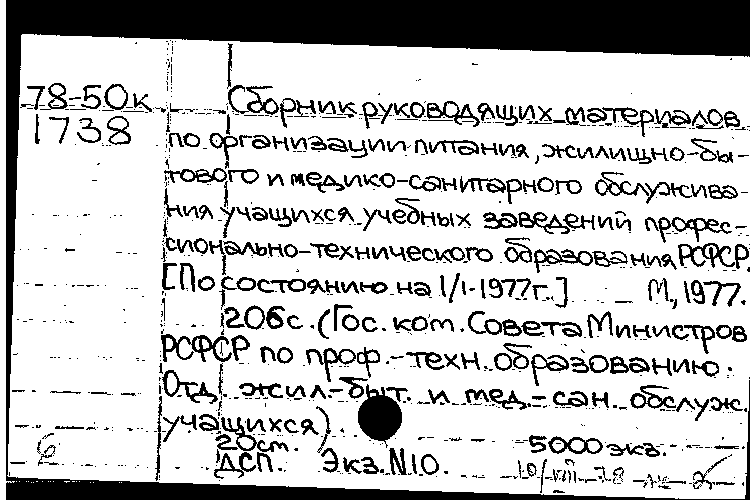 78-50к Сборник руководящих материалов
1738 по организации питания, жилищно-бы-
тового и медико-санитарного обслужива-
ния учащихся учебных заведений профес-
сионально-технического образования РСФСР.
[По состоянию на 1/I-1977г.] М, 1977.
206с. (Гос. ком. Совета Министров
РСФСР по проф.-техн. образованию.
Отд. жил.-быт. и мед.-сан. обслуж.
учащихся).
20см. 5000 экз.
ДСП. Экз. N10. 10/VIII-78